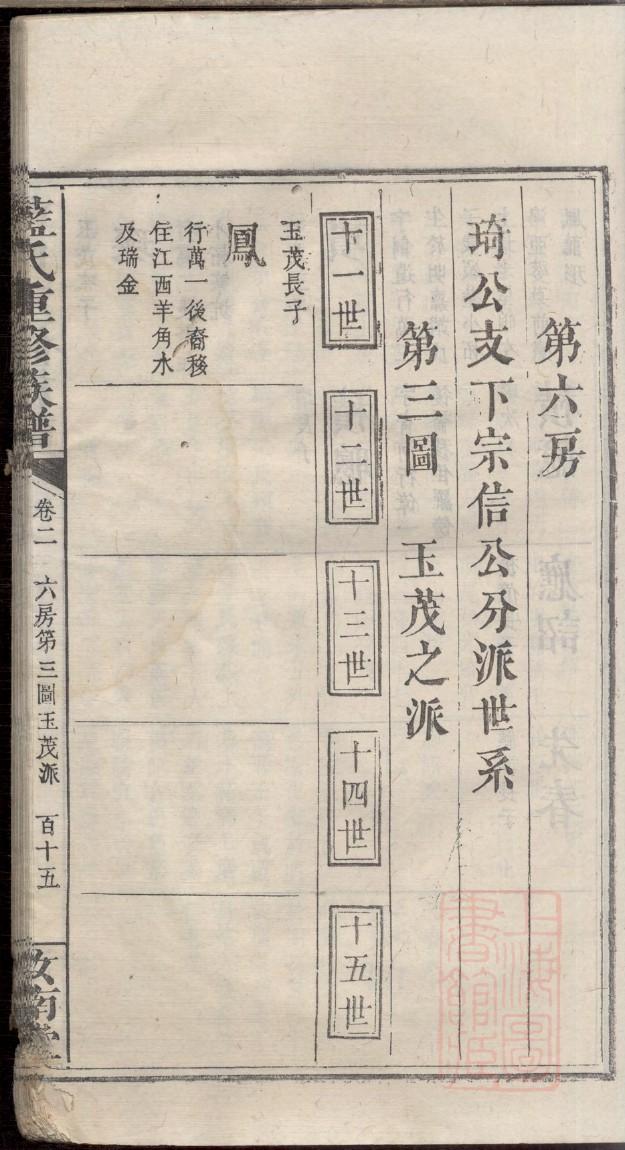 第六房
琦公支下宗信公分派世系
第三圖 玉茂之派
十一世
十二世
十三世
十四世
十五世
玉茂長子
鳳
行萬一後裔移
住江西羊角水
及瑞金
藍氏重修族譜
卷二 六房第三圖玉茂派 百十五
汝南堂
上海圖書館藏